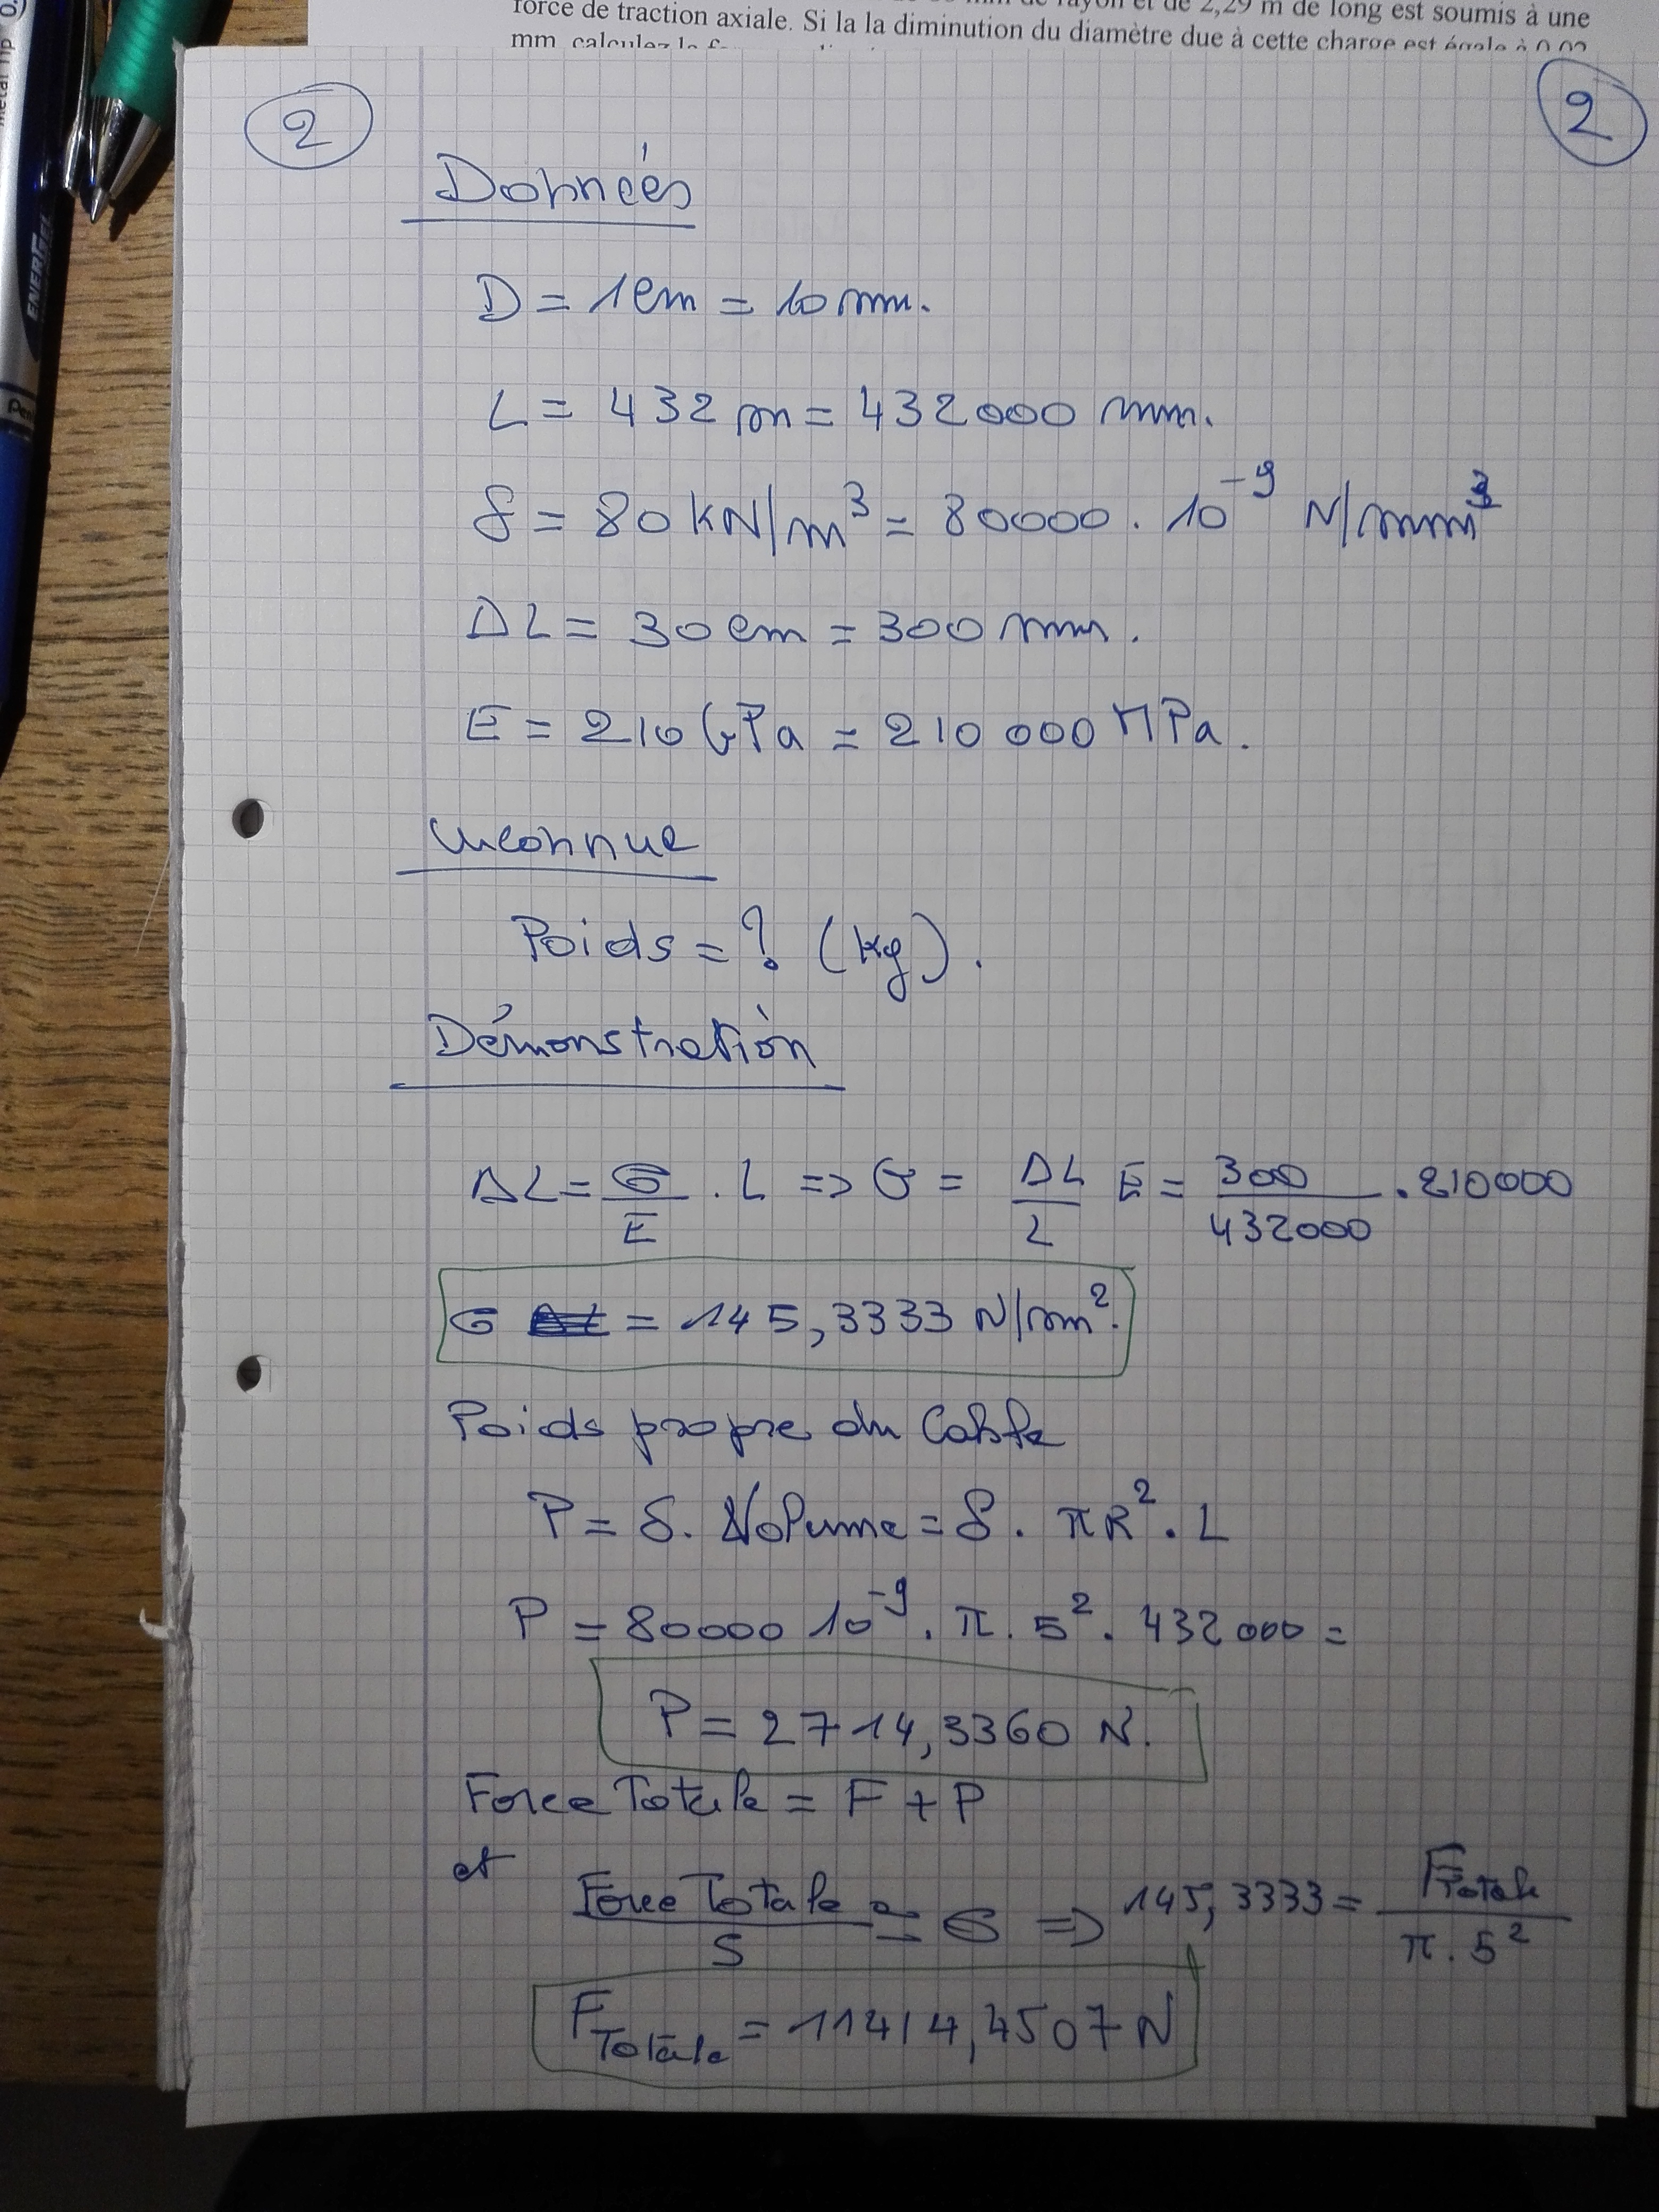 force de traction axiale. Si la la diminution du diamètre due à cette charge est égale à 0,02
2
2
Données
D = 1cm = 10 mm.
L = 432 m = 432000 mm.
δ = 80 kN/m³ = 80000 . 10⁻⁹ N/mm³
ΔL = 30 cm = 300 mm.
E = 210 GPa = 210 000 MPa.
Inconnue
Poids = ? (kg).
Démonstration
ΔL = σ/E . L => σ = ΔL/L E = 300/432000 . 210000
σ = 145,3333 N/mm².
Poids propre du Cable
P = δ. Volume = δ . πR² . L
P = 80000 10⁻⁹ . π . 5² . 432000 =
P = 2714,3360 N.
Force Totale = F + P
et Force Totale/S = σ => 145,3333 = FTotale/π . 5²
FTotale = 11414,4507 N
ENERGEL